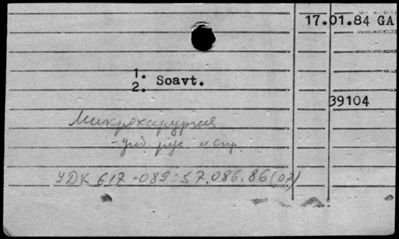 17.01.84 GA
1.
2. Soavt.
39104
Микрохирургия
УДК 617-089:57.086.86(02)